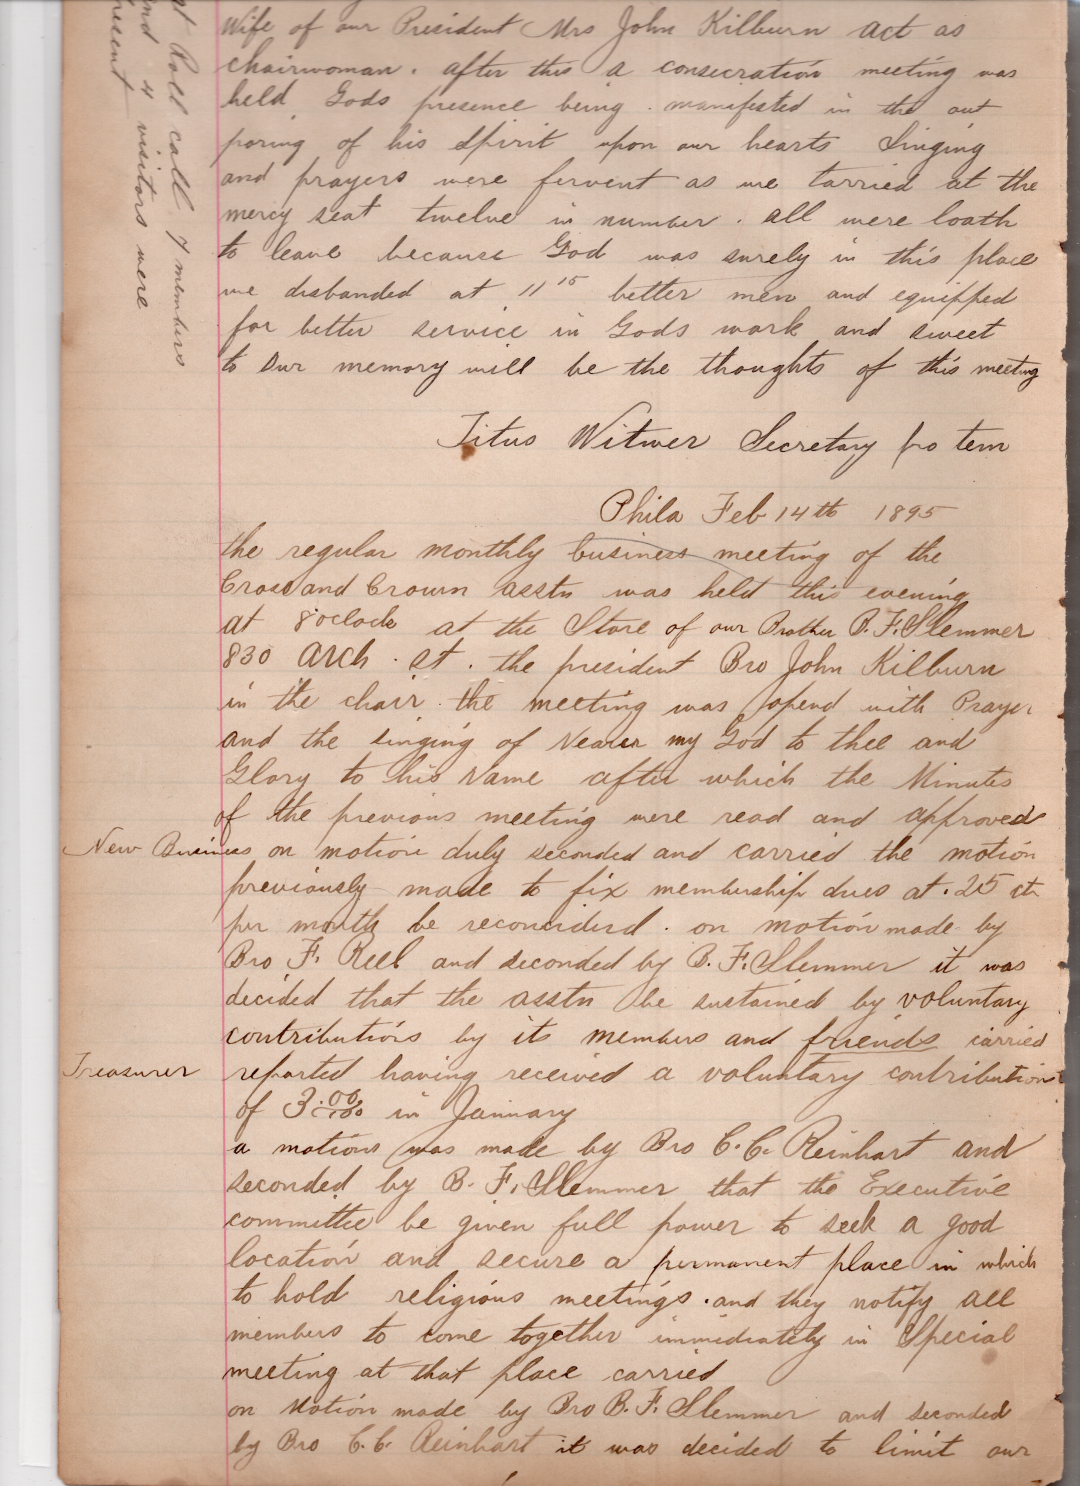 at Roll call 7 members
and 4 visitors were
present
Wife of our President Mrs John Kilburn act as
chairwoman. after this a consecration meeting was
held Gods presence being manifested in the out
poring of his Spirit upon our hearts Singing
and prayers were fervent as we tarried at the
mercy seat twelve in number. all were loath
to leave because God was surely in this place
we disbanded at 11 15 better men and equipped
for better service in Gods work and sweet
to our memory will be the thoughts of this meeting
Titus Witwer Secretary pro tem
Phila Feb 14th 1895
the regular monthly business meeting of the
Cross and Crown asstn was held this evening
at 8 oclock at the Store of our Brother B. F. Slemmer
830 arch. st. the president Bro John Kilburn
in the chair. the meeting was opend with Prayer
and the singing of Nearer my God to thee and
Glory to his Name after which the Minutes
of the previous meeting were read and approved
New Business on motion duly seconded and carried the motion
previously made to fix membership dues at .25 cts
per month be reconciderd. on motion made by
Bro F. Reel and seconded by B. F. Slemmer it was
decided that the asstn be sustained by voluntary
contributions by its members and friends carried
Treasurer reported having received a voluntary contribution
of 3.00 in January
a motion was made by Bro C. C. Reinhart and
seconded by B. F. Slemmer that the Executive
committe be given full power to seek a good
location and secure a permanent place in which
to hold religious meetings. and they notify all
members to come together immediately in Special
meeting at that place carried
on Motion made by Bro B. F. Slemmer and seconded
by Bro C. C. Reinhart it was decided to limit our